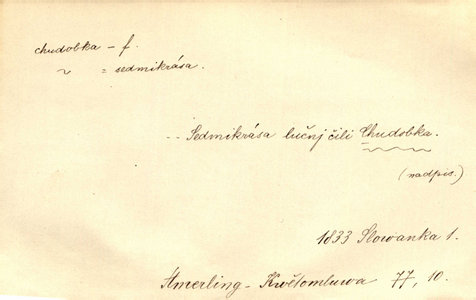 chudobka – f.
~ = sedmikrása.
-- Sedmikrása lučnj čili Chudobka.
(nadpis.)
1833 Slowanka 1.
Ámerling – Kwětomluwa 77, 10.